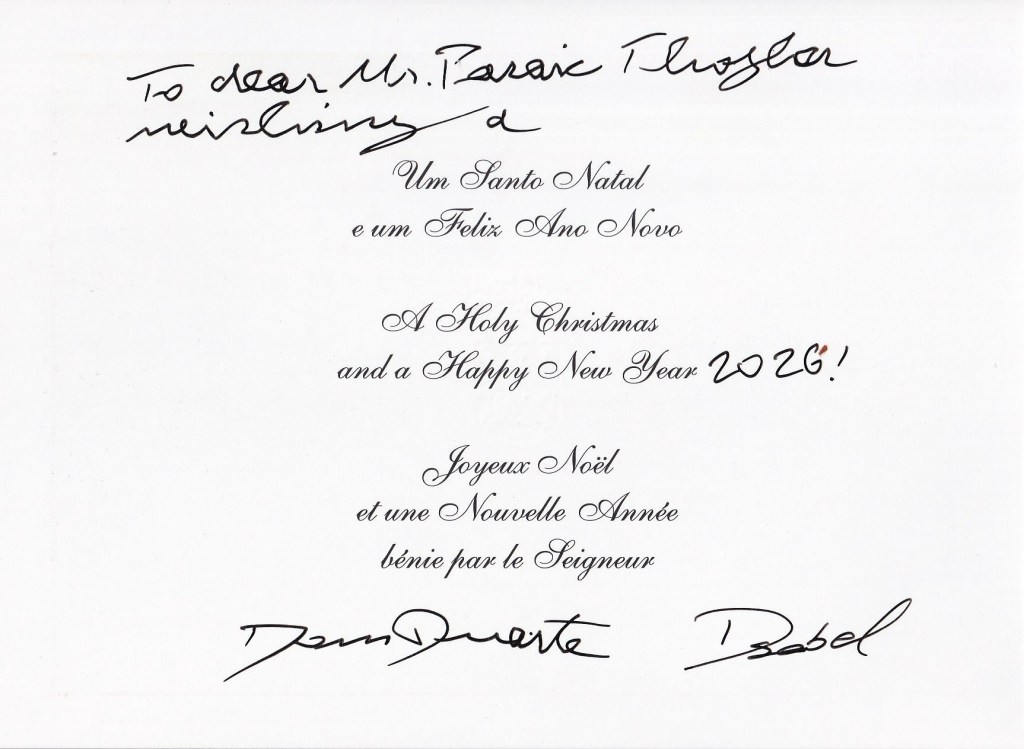 To dear Mr.
wishing a
Um Santo Natal
e um Feliz Ano Novo
A Holy Christmas
and a Happy New Year 2026!
Joyeux Noël
et une Nouvelle Année
bénie par le Seigneur
Dom Duarte Isabel